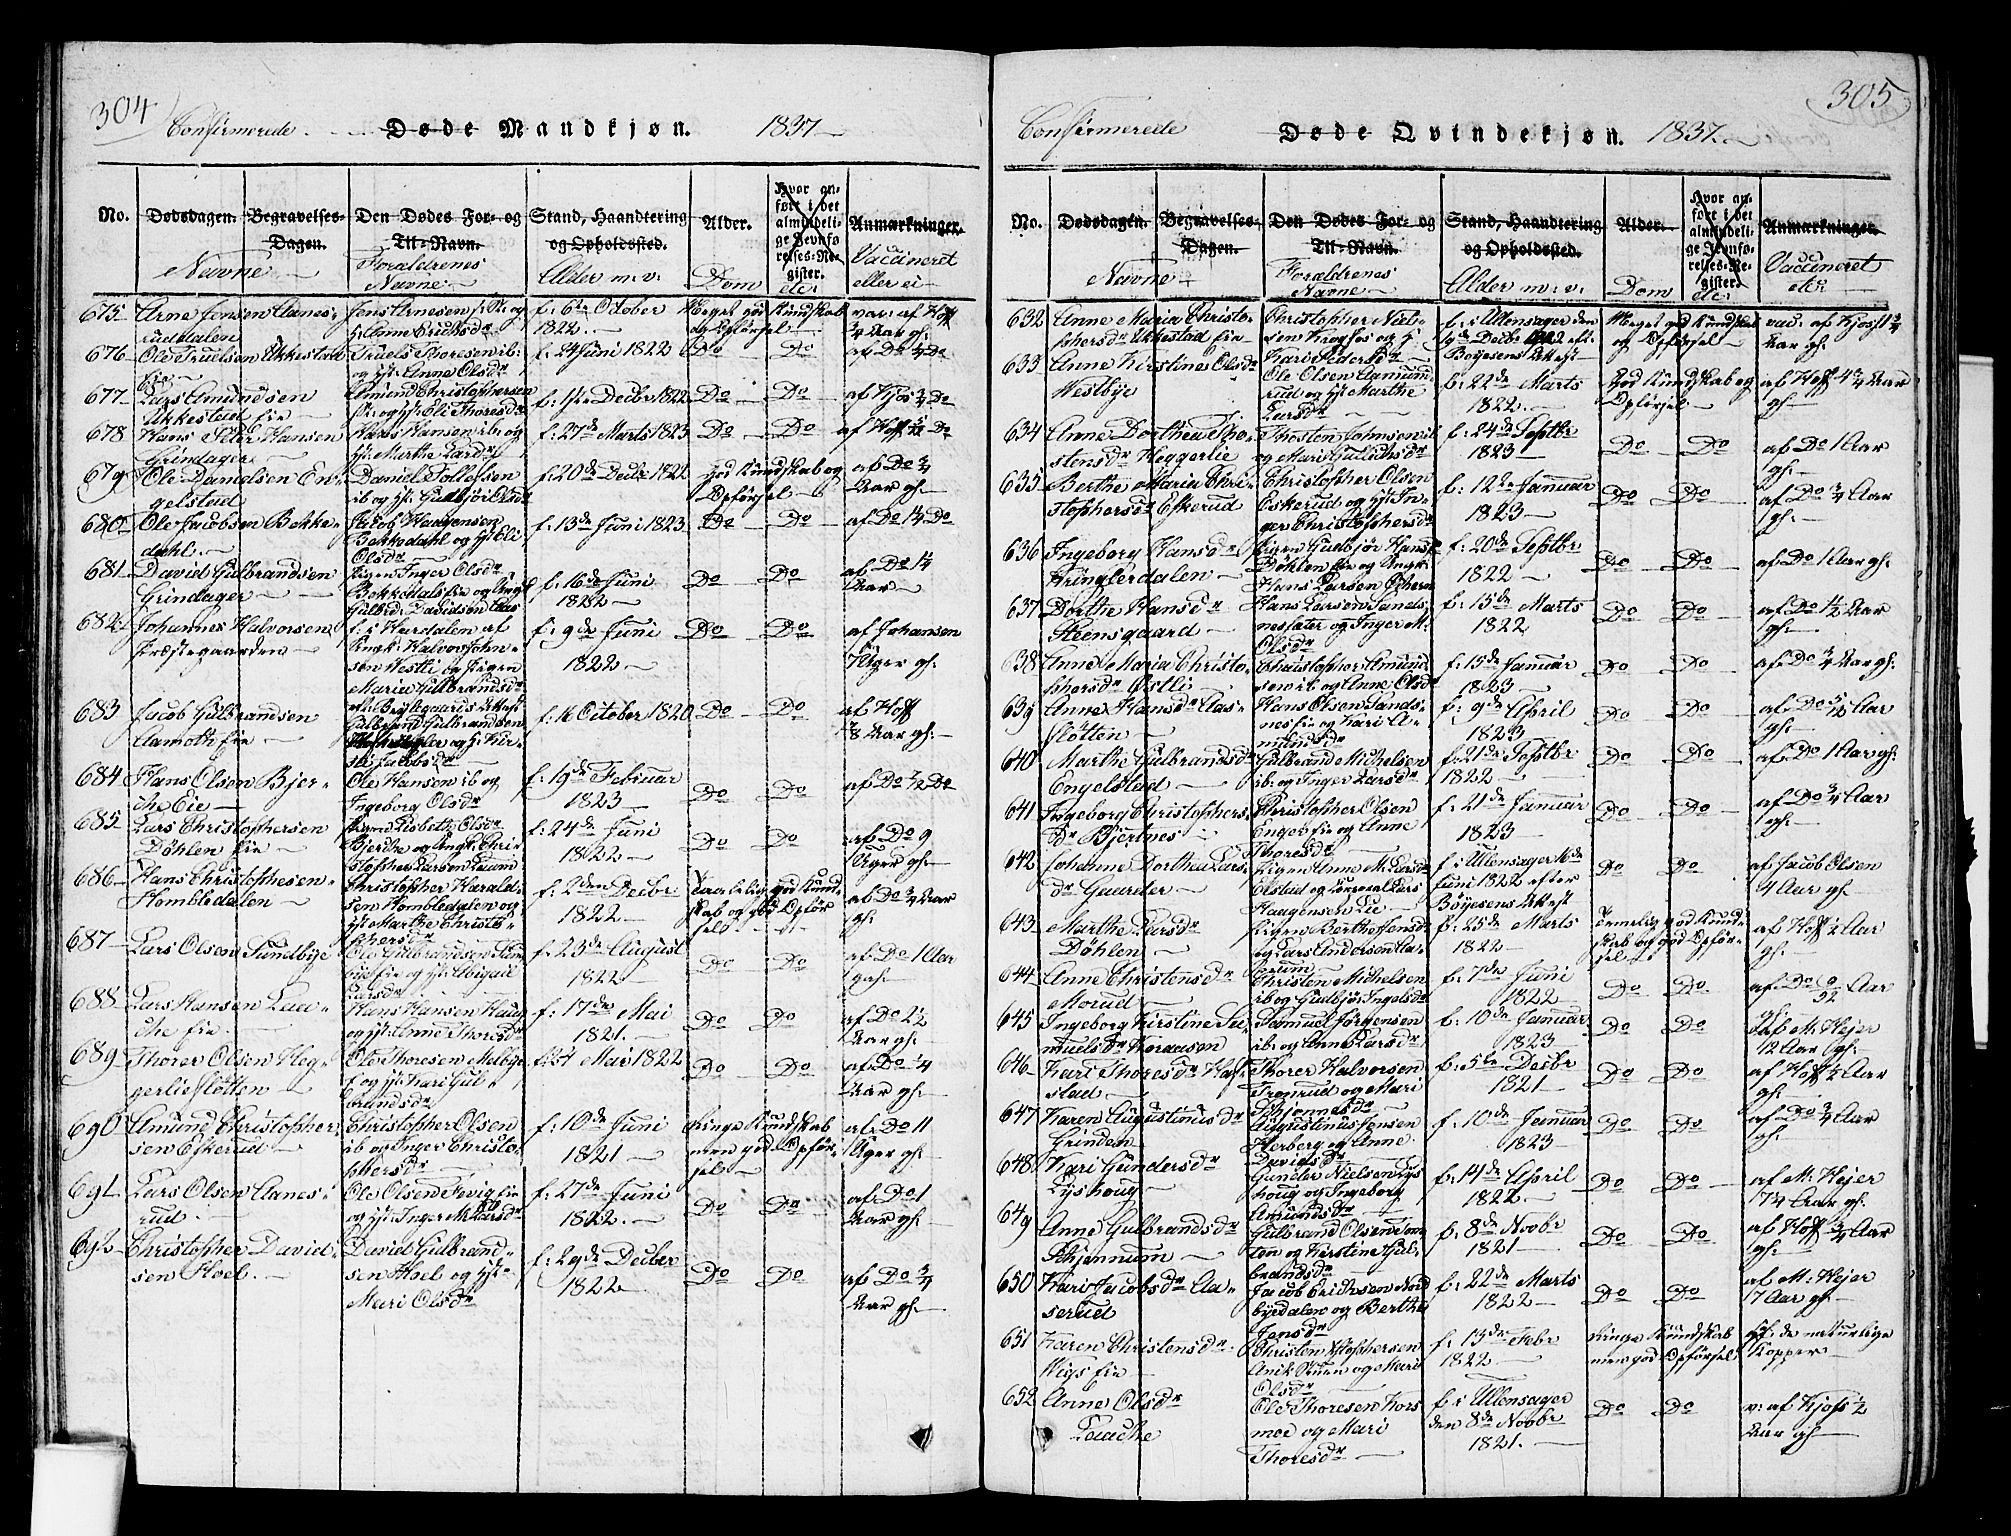 304
Confirmerede
Døde Mandkjøn.
1837
No.
Dødsdagen.
Begravelses-
Dagen.
Den Dødes For- og
Til-Navn.
Stand, Haandtering
og Opholdssted.
Alder.
Hvor an-
ført i det
almindeli-
ge Jevnfø
relses-Re-
gister.
Anmærkninger.
Navne
Forældrenes
Navne
Alder m: v:
Dom
etc:
Vaccineret
eller ei
675 Arne Jensen Aanes-
ruddalen
Jens Arnesen
f: 6te October
1822.
Meget god Kundskab
og Opførsel
vac: af Hoff
3/4 Aar gl:
676 Ole Truelsen Ukkestad
eie
Truels Thoresen ib:
og H: Anne Olsdr
f: 24 Juni 1822
Do
Do
af Do 1/4 Do
677 Lars Amundsen
Ukkestad eie
Amund Christophersen
og H: Eli Thoresdr
Decbr 1822
Do
Do
af Kjos 3/4 Do
678 Hans Peter Hansen
Grindager
Hans Hansen ib: og
H: Marthe Larsdr
f: 27de Marts 1823
Do
Do
af Hoff
Do
679 Ole Danielsen En-
gelstad
Daniel Tollefsen
ib og H: Gulbjør Olsdr
f: 20de Decbr 1822
God Kundskab og
Opførsel
af Do 3/4
Aar gl:
680 Ole Jacobsen Bekke-
dahl.
Jacob Haagensen
Bekkedahl og H: Eli
Olsdr
f: 13de Juni 1823
Do
Do
af Do 1/4 Do
681 David Gulbrandsen
Grindager
Pigen Inger Olsdr
Gulbr: Davidsen Aas
f: 16de Juni
1822
Do
Do
af Do 1/4
Aar
682 Johannes Halvorsen
Præstegaarden
f: i Hurdalen af
Ungk: Halvor John-
sen Westli og Pigen
Maria Gulbrandsdr
f: 9de Juni
1822
Do
Do
af Johansen
7 Uger gl:
683 Jacob Gulbrandsen
Aamoth eie
Gulbrand Gulbrandsen
f: 16 October 1820
Do
Do
af Hoff
Aar gl:
684 Hans Olsen Bjer-
che Eie
Ole Hansen ib og
Ingeborg Olsdr
f: 19de Februar
1823
Do
Do
af Do 1/2 Do
685 Lars Christophersen
Døhlen eie
Lisbeth Olsdr
Bjerche og Ungk: Chri-
stopher Larsen
f: 24de Juni
1822
Do
Do
af Do 9
Uger gl:
686 Hans Christophesen
Hombledalen
Christopher Harald-
sen Hombledalen og
H: Marthe Christo-
phersdr
f: 2den Decbr.
1822
god Kund-
skab og god Opfør
sel
af Do 3/4 Aar
gl:
687 Lars Olsen Sundbye
Ole Gulbrandsen Sund
bye eie og H: Abigael
Larsdr
f: 23de August
1822
Do
Do
af Do 1 Aar
gl:
688 Lars Hansen Laa-
che eie
Hans Hansen Haug
og H: Anne Thoresdr
f: 17de Mai
1821.
Do
Do
af Do 2 1/2
Aar gl:
689 Thorer Olsen Heg-
gerliesløtten
Ole Thoresen Melbye
og H: Kari Gul-
brandsdr
Mai 1822
Do
Do
af Do 1/4
Aar gl:
690 Amund Christopher-
sen Eskerud
Christopher Olsen
ib og Inger Christo-
phersdr
f: 10de Juni
1821
Ringe Kundskab
men god Opfør-
sel
af: Do 11
Uger gl:
691 Lars Olsen Aanes-
rud
Ole Olsen
eie
og H: Inger M: Larsdr
f: 27de Juni
1822.
Do
Do
af Do 1
Aar gl:
692 Christopher David-
sen Hoel.
David Gulbrand-
sen Hoel og H:
Mari Olsdr
f: 29de Decber
1822
Do
Do
af Do 3/4
Aar gl:
305
Confirmerede
Døde Qvindekjøn.
1837.
No.
Dødsdagen.
Begravelses-
Dagen.
Den Dødes For- og
Til-Navn.
Stand, Haandtering
og Opholdssted.
Alder.
Hvor an-
ført i det
almindeli-
ge Jevnfø-
relses-Re-
gister.
Anmærkninger.
Navne
Forældrenes
Navne
Alder m: v:
Dom
etc:
Vaccineret
etc:
632 Anne Maria Christo-
phersdr Ukkestad eie
Christopher Niel-
sen Krogfos og H:
Kari Pedersdr
f: i Ullensager den
Decbr 1822 eft:
Boyesens Attest
Meget god Kundskab
og Opførsel
vac: af Kjos 1 3/4
Aar gl:
633 Anne Kirstine Olsdr
Westbye
Ole Olsen Aamund
rud og H: Marthe
Larsdr
f: 22de Marts
1822.
God Kundskab og
Opførsel
af Hoff
Aar
gl:
634 Anne Dorthea Tho-
stensdr Heggerlie
Thosten Johnsen ib
og Mari Gulichsdr
f: 24de Septbr
1823
Do
Do
af Do 1 Aar
gl:
635 Berthe Maria Chri-
stophersdr Eskerud
Christopher Olsen
Eskerud og H: In-
ger Christophersdr
f: 12de Januar
1823
Do
Do
af Do 3/4 Aar
gl:
636 Ingeborg Hansdr
Kringlerdalen
Pigen Gulbjør Hansdr
Døhlen eie og Ungk:
Hans Larsen
f: 20de Septbr
1822
Do
Do
af Do 1 Aar gl:
637 Dorthe Hansdr
Steensgaard
Hans Larsen Sands-
nessæter og Inger M:
Olsdr
f: 15de Marts
1822
Do
Do
af Do 1 1/2 Aar
gl:
638 Anne Maria Christo-
phersdr Østli
Christopher Amund
sen ib og Anne Olsdr
f: 15de Januar
1823
Do
Do
af Do 3/4 Aar gl:
639 Anne Hansdr Aas-
sløtten
Hans Olsen Sands-
nes eie og Kari A-
mundsdr
f: 9de April
1823
Do
Do
af Do 5/12 Aar
gl:
640 Marthe Gulbrandsdr
Engelstad
Gulbrand Michelsen
ib: og Inger Larsdr
f: 21de Septbr
1822
Do
Do
af Do 1 Aar gl:
641 Ingeborg Christophers
Dr Bjertnes
Christopher Olsen
Enger eie og Anne
Thoresdr
f: 21de Januar
1823
Do
Do
af Do 3/4 Aar
gl:
642 Johanne Dorthea Lars
dr Gaarder
Pigen Anne M: Larsdr
Olstad og Corporal Lars
Haagensen Lie
f: i Ullensager
Juni 1822 efter
Boyesens Attest
Do
Do
af Jacob Olsen
4 Aar gl:
643 Marthe Larsdr
Døhlen
Pigen Berthe Jensdr
og Lars Andersen Aa-
mrum
f: 25de Marts
1822
Temelig god Kund-
skab og god Opfør-
sel
af Hoff 1/2 Aar
gl:
644 Anne Christensdr
Morud
Christen Michelsen
ib og Gulbjør Ingelsdr
f: 7de Juni
1822
Do
Do
af Do
Aar
gl:
645 Ingeborg Kirstine Sa-
muelsdr Kordaasen
Samuel Jørgensen
ib: og Anne Larsdr
f: 10de Januar
1823
Do
Do
af M: Hejer
12 Aar gl:
646 Kari Thoresdr
stad
Thorer Halvorsen
Tromrud og Mari
Johannesdr
f: 5te Decbr
1821
Do
Do
af Hoff 1/2 Aar
gl:
647 Karen Augustinusdr
Grinden
Augustinus Jensen
Horberg og Anne
Davidsdr
f: 10de Januar
1823
Do
Do
af Do 3/4 Aar
gl:
648 Kari Gundersdr
Lyshoug
Gunder Nielsen Lys
houg og Ingeborg
Amundsdr
f: 14de April
1822
Do
Do
af M: Hejer
Aar gl:
649 Anne Gulbrandsdr
Skjønnum
Gulbrand Olsen
og Kirstine Gul-
brandsdr
f: 8de Novbr
1821
Do
Do
af Hoff 3/4 Aar
gl:
650 Kari Jacobsdr Aa-
serud
Jacob Erichsen Nord
byedalen og Berthe
Jensdr
f: 22de Marts
1822
Do
Do
af M: Hejer
Aar gl:
651 Karen Christensdr
Wigs eie
Christen Christophersen
og Mari
Olsdr
f: 13de Febr
1822
Ringe Kundskab
men god Opførsel
af: de naturlige
Kopper
652 Anne Olsdr
Laache
Ole Thoresen Hors
moe og Mari
Thoresdr
f: i Ullensager
den 8de Novbr
1821.
Do
Do
v: af Kjos 1/2
Aar gl: